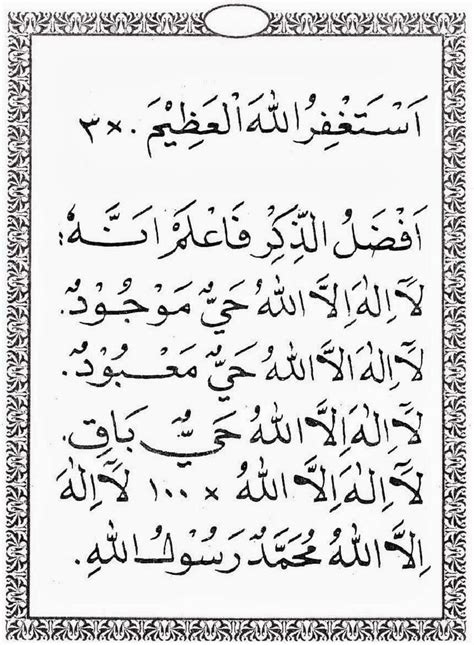 اَسْتَغْفِرُ اللهَ الْعَظِيْمَ . ×٣
اَفْضَلُ الذِّكْرِ فَاعْلَمْ اَنَّهُ :
لَآ اِلٰهَ اِلَّا اللهُ حَيٌّ مَوْجُوْدٌ .
لَآ اِلٰهَ اِلَّا اللهُ حَيٌّ مَعْبُوْدٌ .
لَآ اِلٰهَ اِلَّا اللهُ حَيٌّ بَاقٍ .
لَآ اِلٰهَ اِلَّا اللهُ × ١٠٠ لَآ اِلٰهَ
اِلَّا اللهُ مُحَمَّدٌ رَسُوْلُ اللهِ .